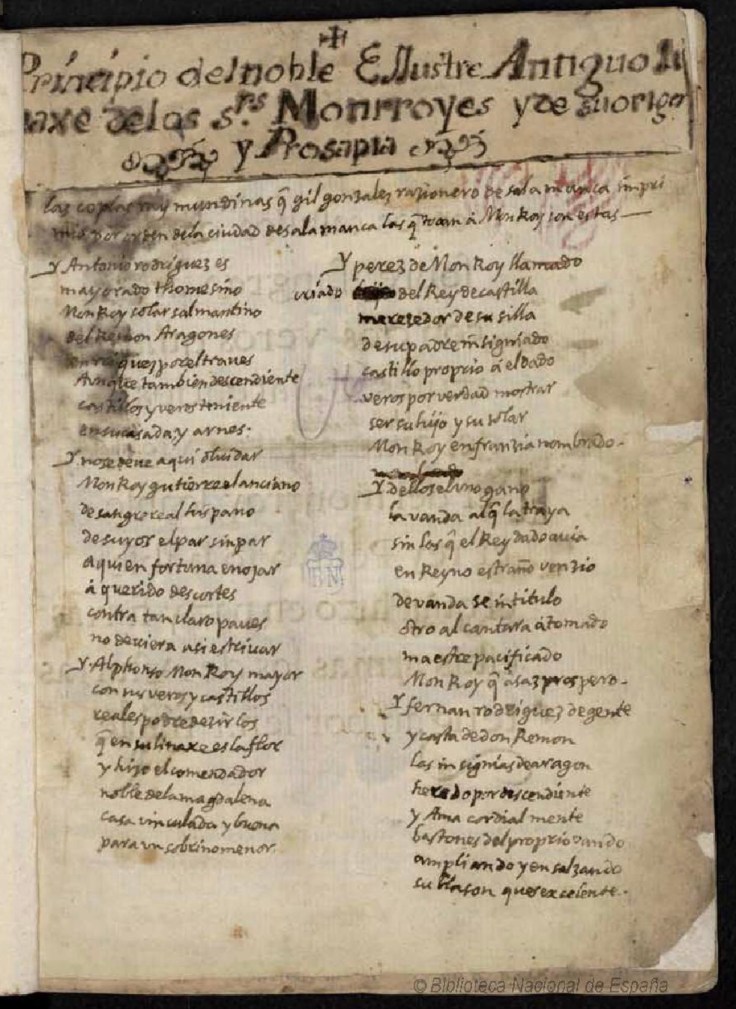 Principio del noble E Illustre Antiguo li
naxe de los s.rs Monrroyes y de su origen
y Prosapia
las coplas muy mundinas q̃ gil gonzalez razionero de salamanca impri
mio por orden de la ciudad de salamanca las q̃ tocan á Mon Roy son estas
y Antonio rodriguez es
mayorado thomesino
Mon Roy solar salmantino
del Remon Aragones
enriquez por el traves
Aunque tambien descendiente
castillos y veros teniente
en su casada y arnes.
y no se deve aqui olvidar
Mon Roy gutierre el anciano
de sangre real hispano
de suyos el par sin par
a quien fortuna enojar
á querido descortes
contra tan claro paves
no deviera asi estrivar
y Alphonso Mon Roy mayor
con sus veros y castillos
reales podre dezir los
q̃ en su linaxe es la flor
y hijo el comendador
noble de la magdalena
casa vinculada y buena
para un sobrino menor
y perez de Mon Roy llamado
criado del Rey de castilla
merezedor de su silla
de su padre insigniado
castillo proprio á el dado
veros por verdad mostrar
ser su hijo y su solar
Mon Roy en franzia nombrado.
y dellos el uno gano
la vanda al q̃ la traya
sin los q̃ el Rey dado avia
en Reyno estraño venzio
de vanda se intitulo
otro alcantara á tomado
maestre pacificado
Mon Roy q̃ asaz prospero.
y fernan rodriguez de gente
y casta de don Remon
las insignias de aragon
heredo por descendiente
y Ama cordial mente
bastones del proprio vando
ampliando y ensalzando
su blason ques excelente.
BN
© Biblioteca Nacional de España